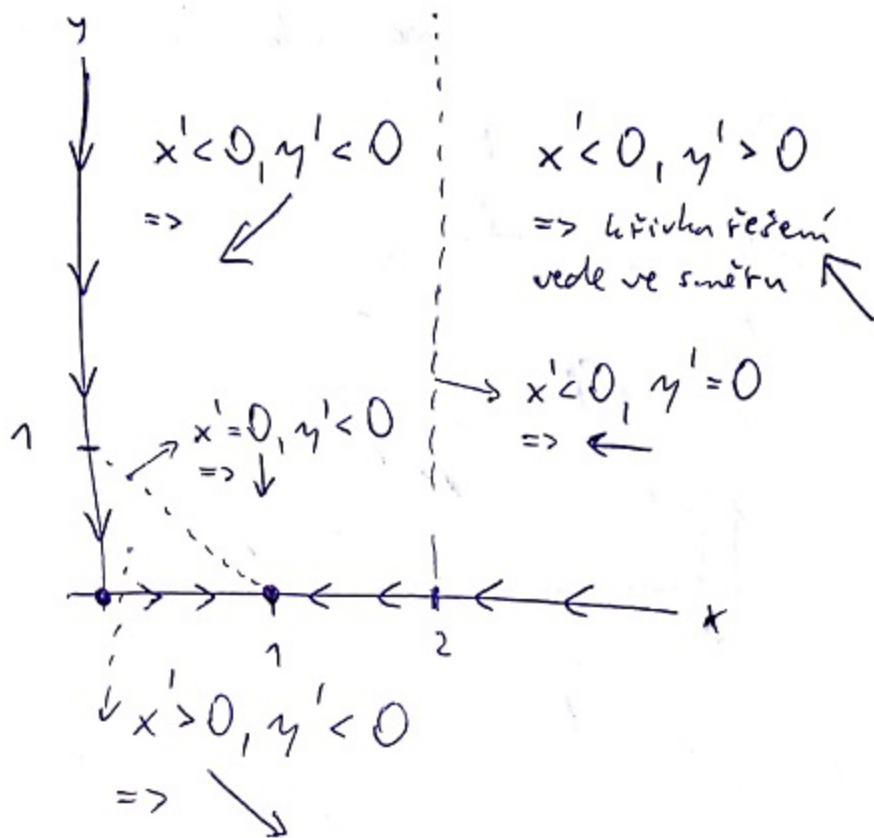 y
x' < 0, y' < 0
=>
x' < 0, y' > 0
=> křivka řešení
vede ve směru
x' < 0, y' = 0
=>
1
x' = 0, y' < 0
=>
x
1
2
x' > 0, y' < 0
=>